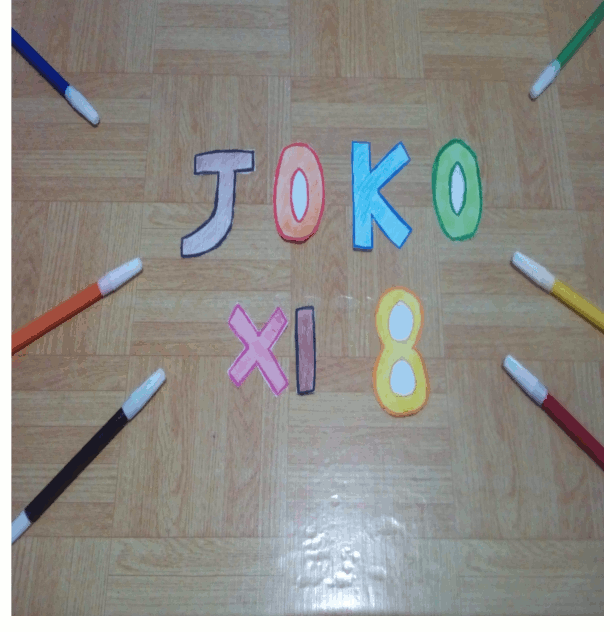 JOKO
XI 8